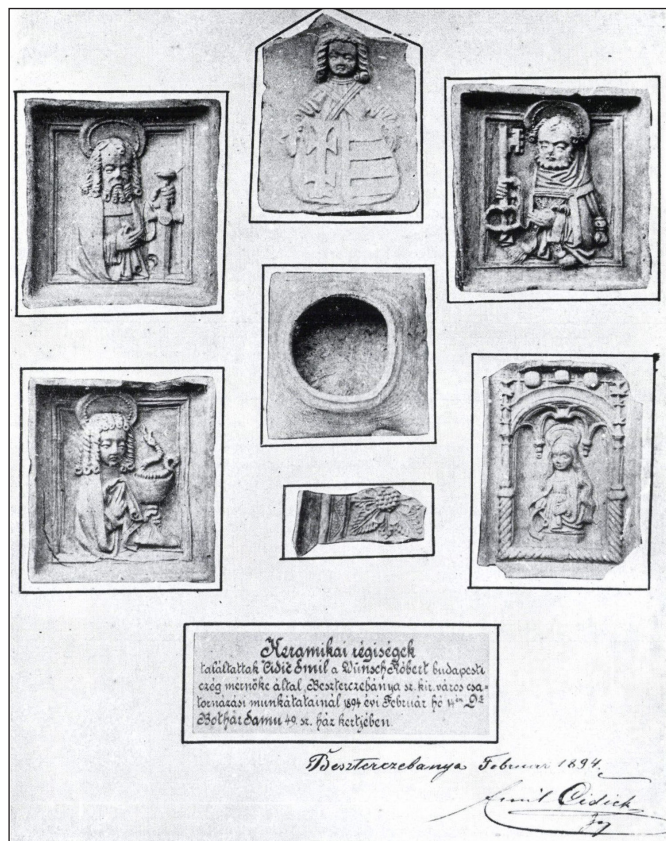 Keramikai régiségek
találtattak Cidic Emil a Wünsch Róbert budapesti
czég mernöke által, Beszterczebánya sz. kir. város csa-
tornázási munkátatainál 1894 évi Február hó 14én Dr
Bothár Samu 49. sz. ház kertjében.
Beszterczebanya Februar 1894.
Emil Cidick